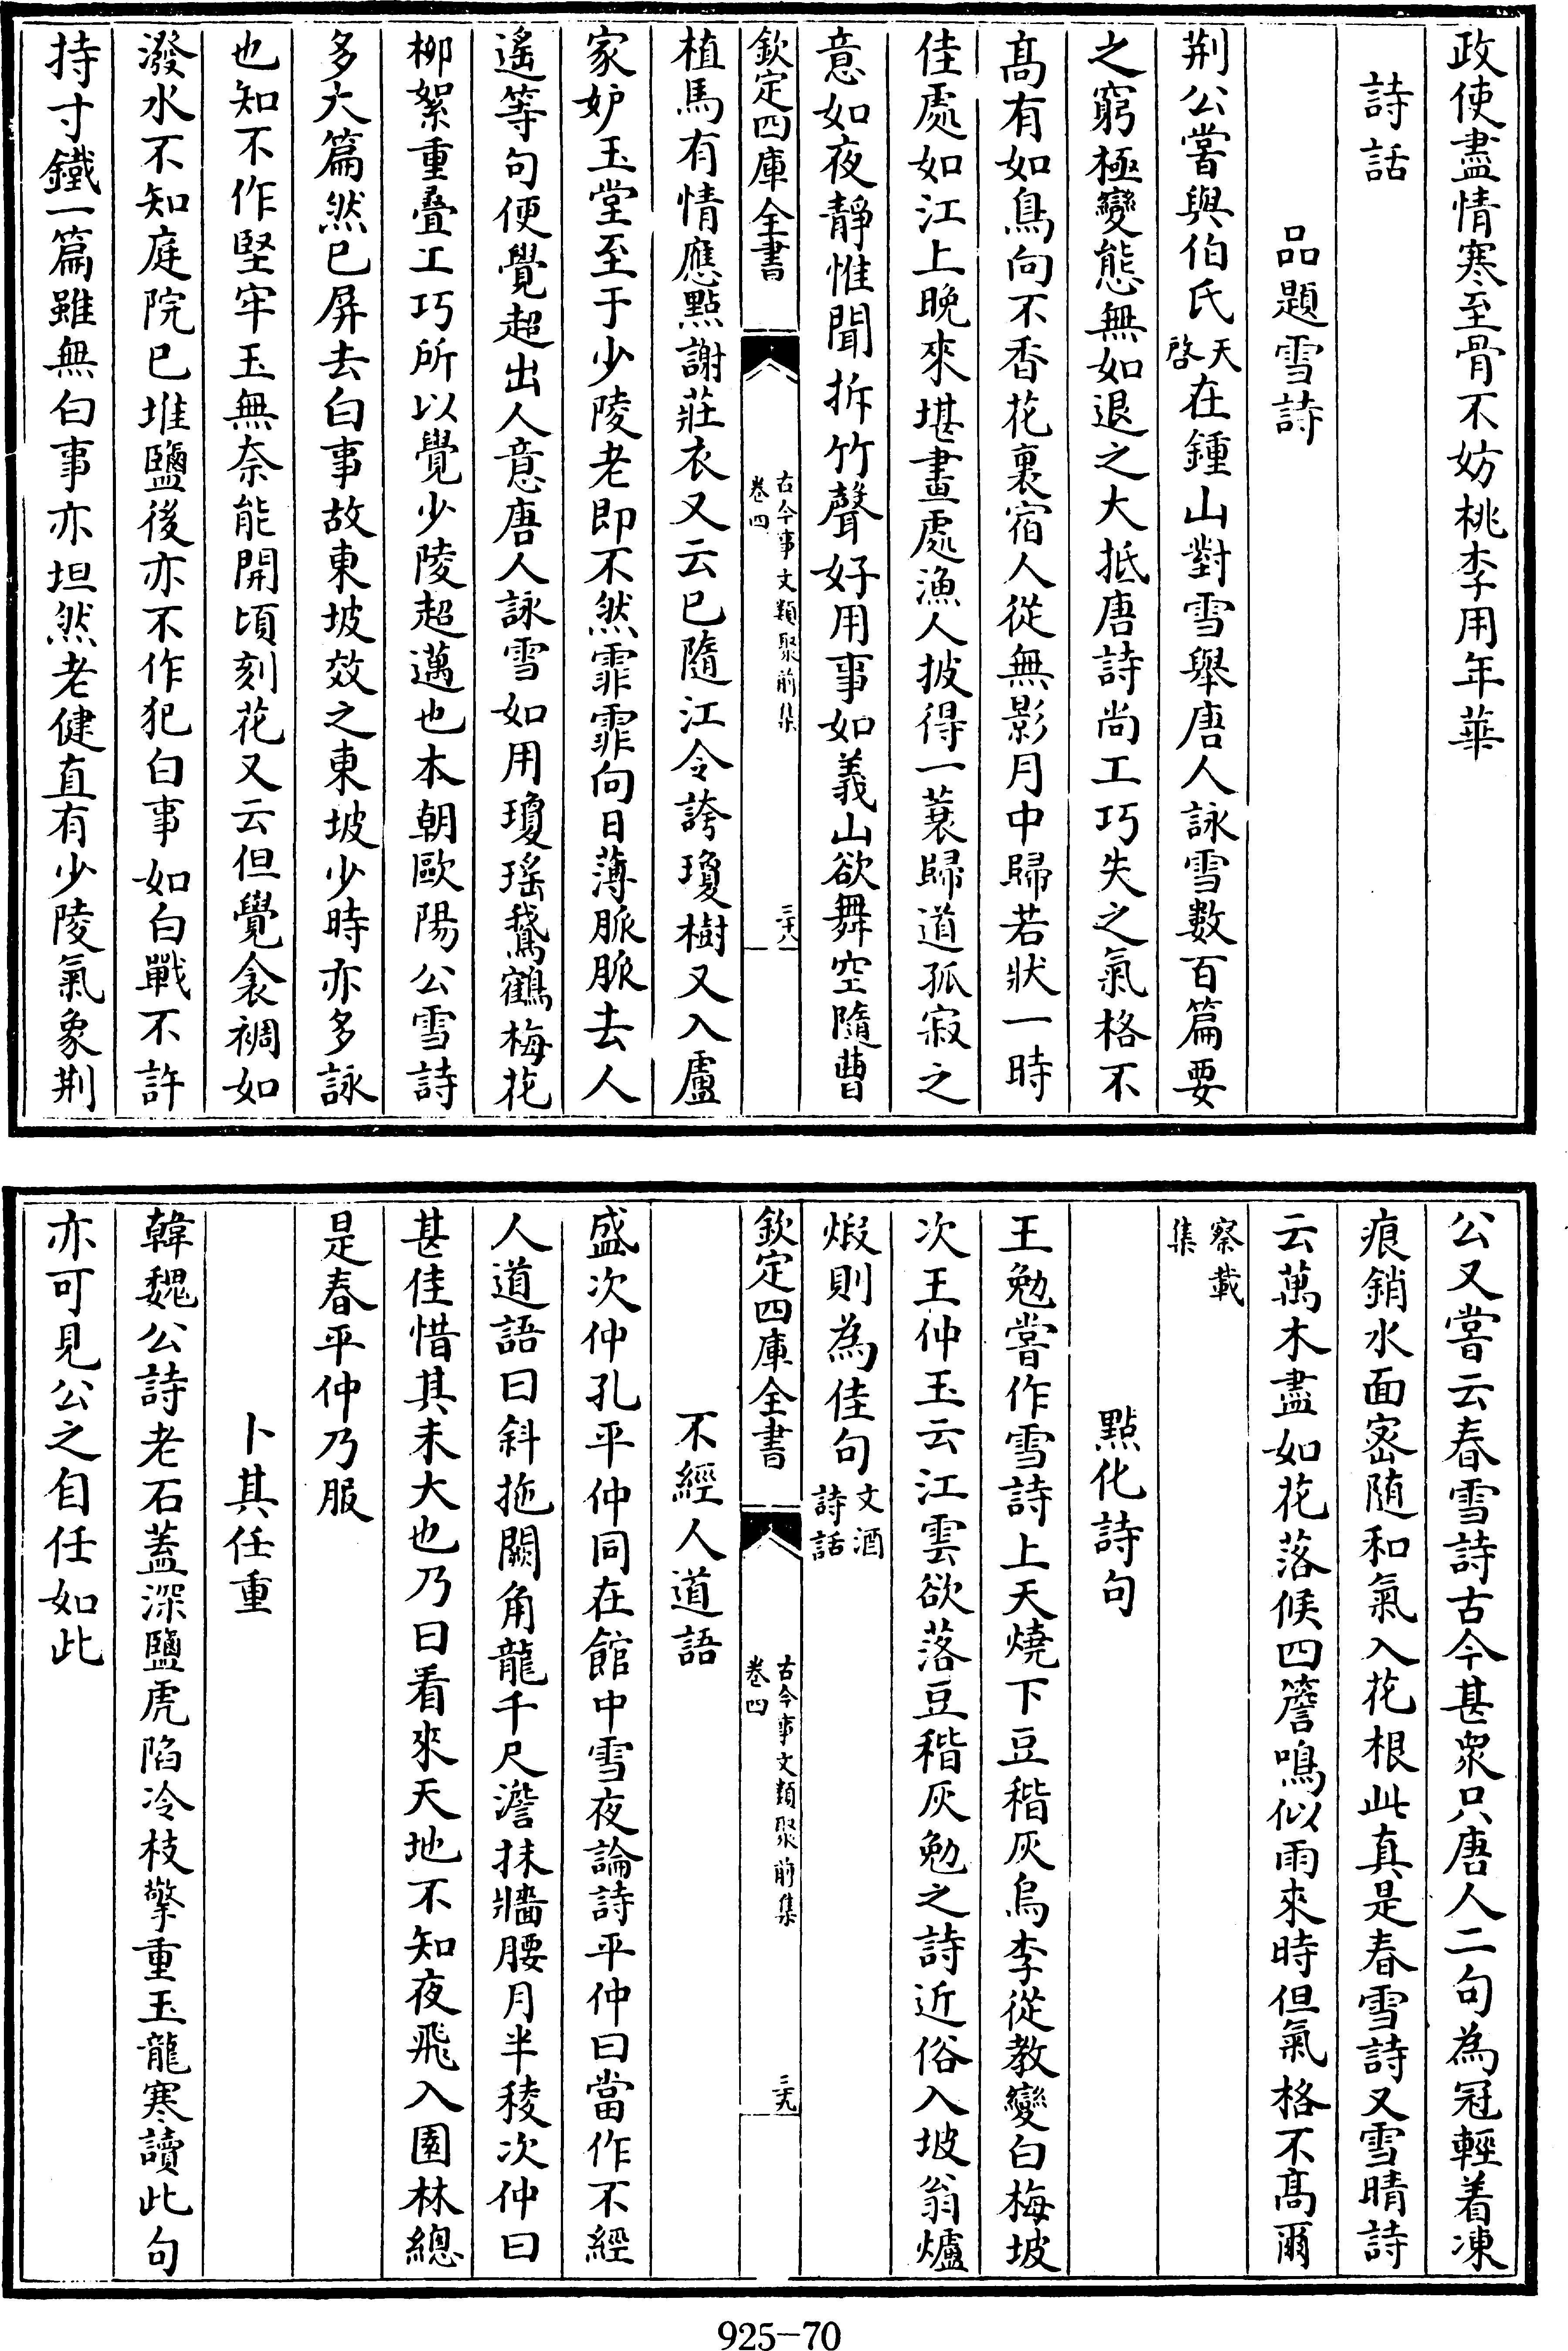 政使盡情寒至骨不妨桃李用年華
詩話
品題雪詩
荆公嘗與伯氏天啓在鍾山對雪舉唐人詠雪數百篇要
之窮極變態無如退之大抵唐詩尚工巧失之氣格不
髙有如鳥向不香花裏宿人從無影月中歸若狀一時
佳處如江上晚來堪畫處漁人披得一蓑歸道孤寂之
意如夜静惟聞拆竹聲好用事如義山欲舞空隨曹
欽定四庫全書
古今事文類聚前集
卷四
三十八
植馬有情應點謝莊衣又云已隨江令誇瓊樹又入盧
家妒玉堂至于少陵老即不然霏霏向日薄脈脈去人
遙等句便覺超出人意唐人詠雪如用瓊瑤鵞鶴梅花
柳絮重疊工巧所以覺少陵超邁也本朝歐陽公雪詩
多大篇然已屏去白事故東坡效之東坡少時亦多詠
也知不作堅牢玉無奈能開頃刻花又云但覺衾裯如
潑水不知庭院已堆鹽後亦不作犯白事如白戰不許
持寸鐵一篇雖無白事亦坦然老健直有少陵氣象荆
公又嘗云春雪詩古今甚衆只唐人二句為冠輕着凍
痕銷水面密随和氣入花根此真是春雪詩又雪晴詩
云萬木盡如花落候四簷鳴似雨來時但氣格不髙爾
察載
集
點化詩句
王勉嘗作雪詩上天燒下豆稭灰烏李從教變白梅坡
次王仲玉云江雲欲落豆稭灰勉之詩近俗入坡翁爐
煆則為佳句文酒詩話
欽定四庫全書
古今事文類聚前集
卷四
三十九
不經人道語
盛次仲孔平仲同在館中雪夜論詩平仲曰當作不經
人道語曰斜拖闕角龍千尺澹抹牆腰月半稜次仲曰
甚佳惜其未大也乃曰看來天地不知夜飛入園林總
是春平仲乃服
卜其任重
韓魏公詩老石蓋深鹽虎陷冷枝擎重玉龍寒讀此句
亦可見公之自任如此
925-70